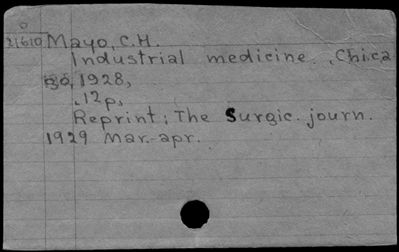 o
21610 Mayo, C.H.
Industrial medicine. Chica
go, 1928,
12p,
Reprint: The Surgic. journ.
1929 Mar.-apr.